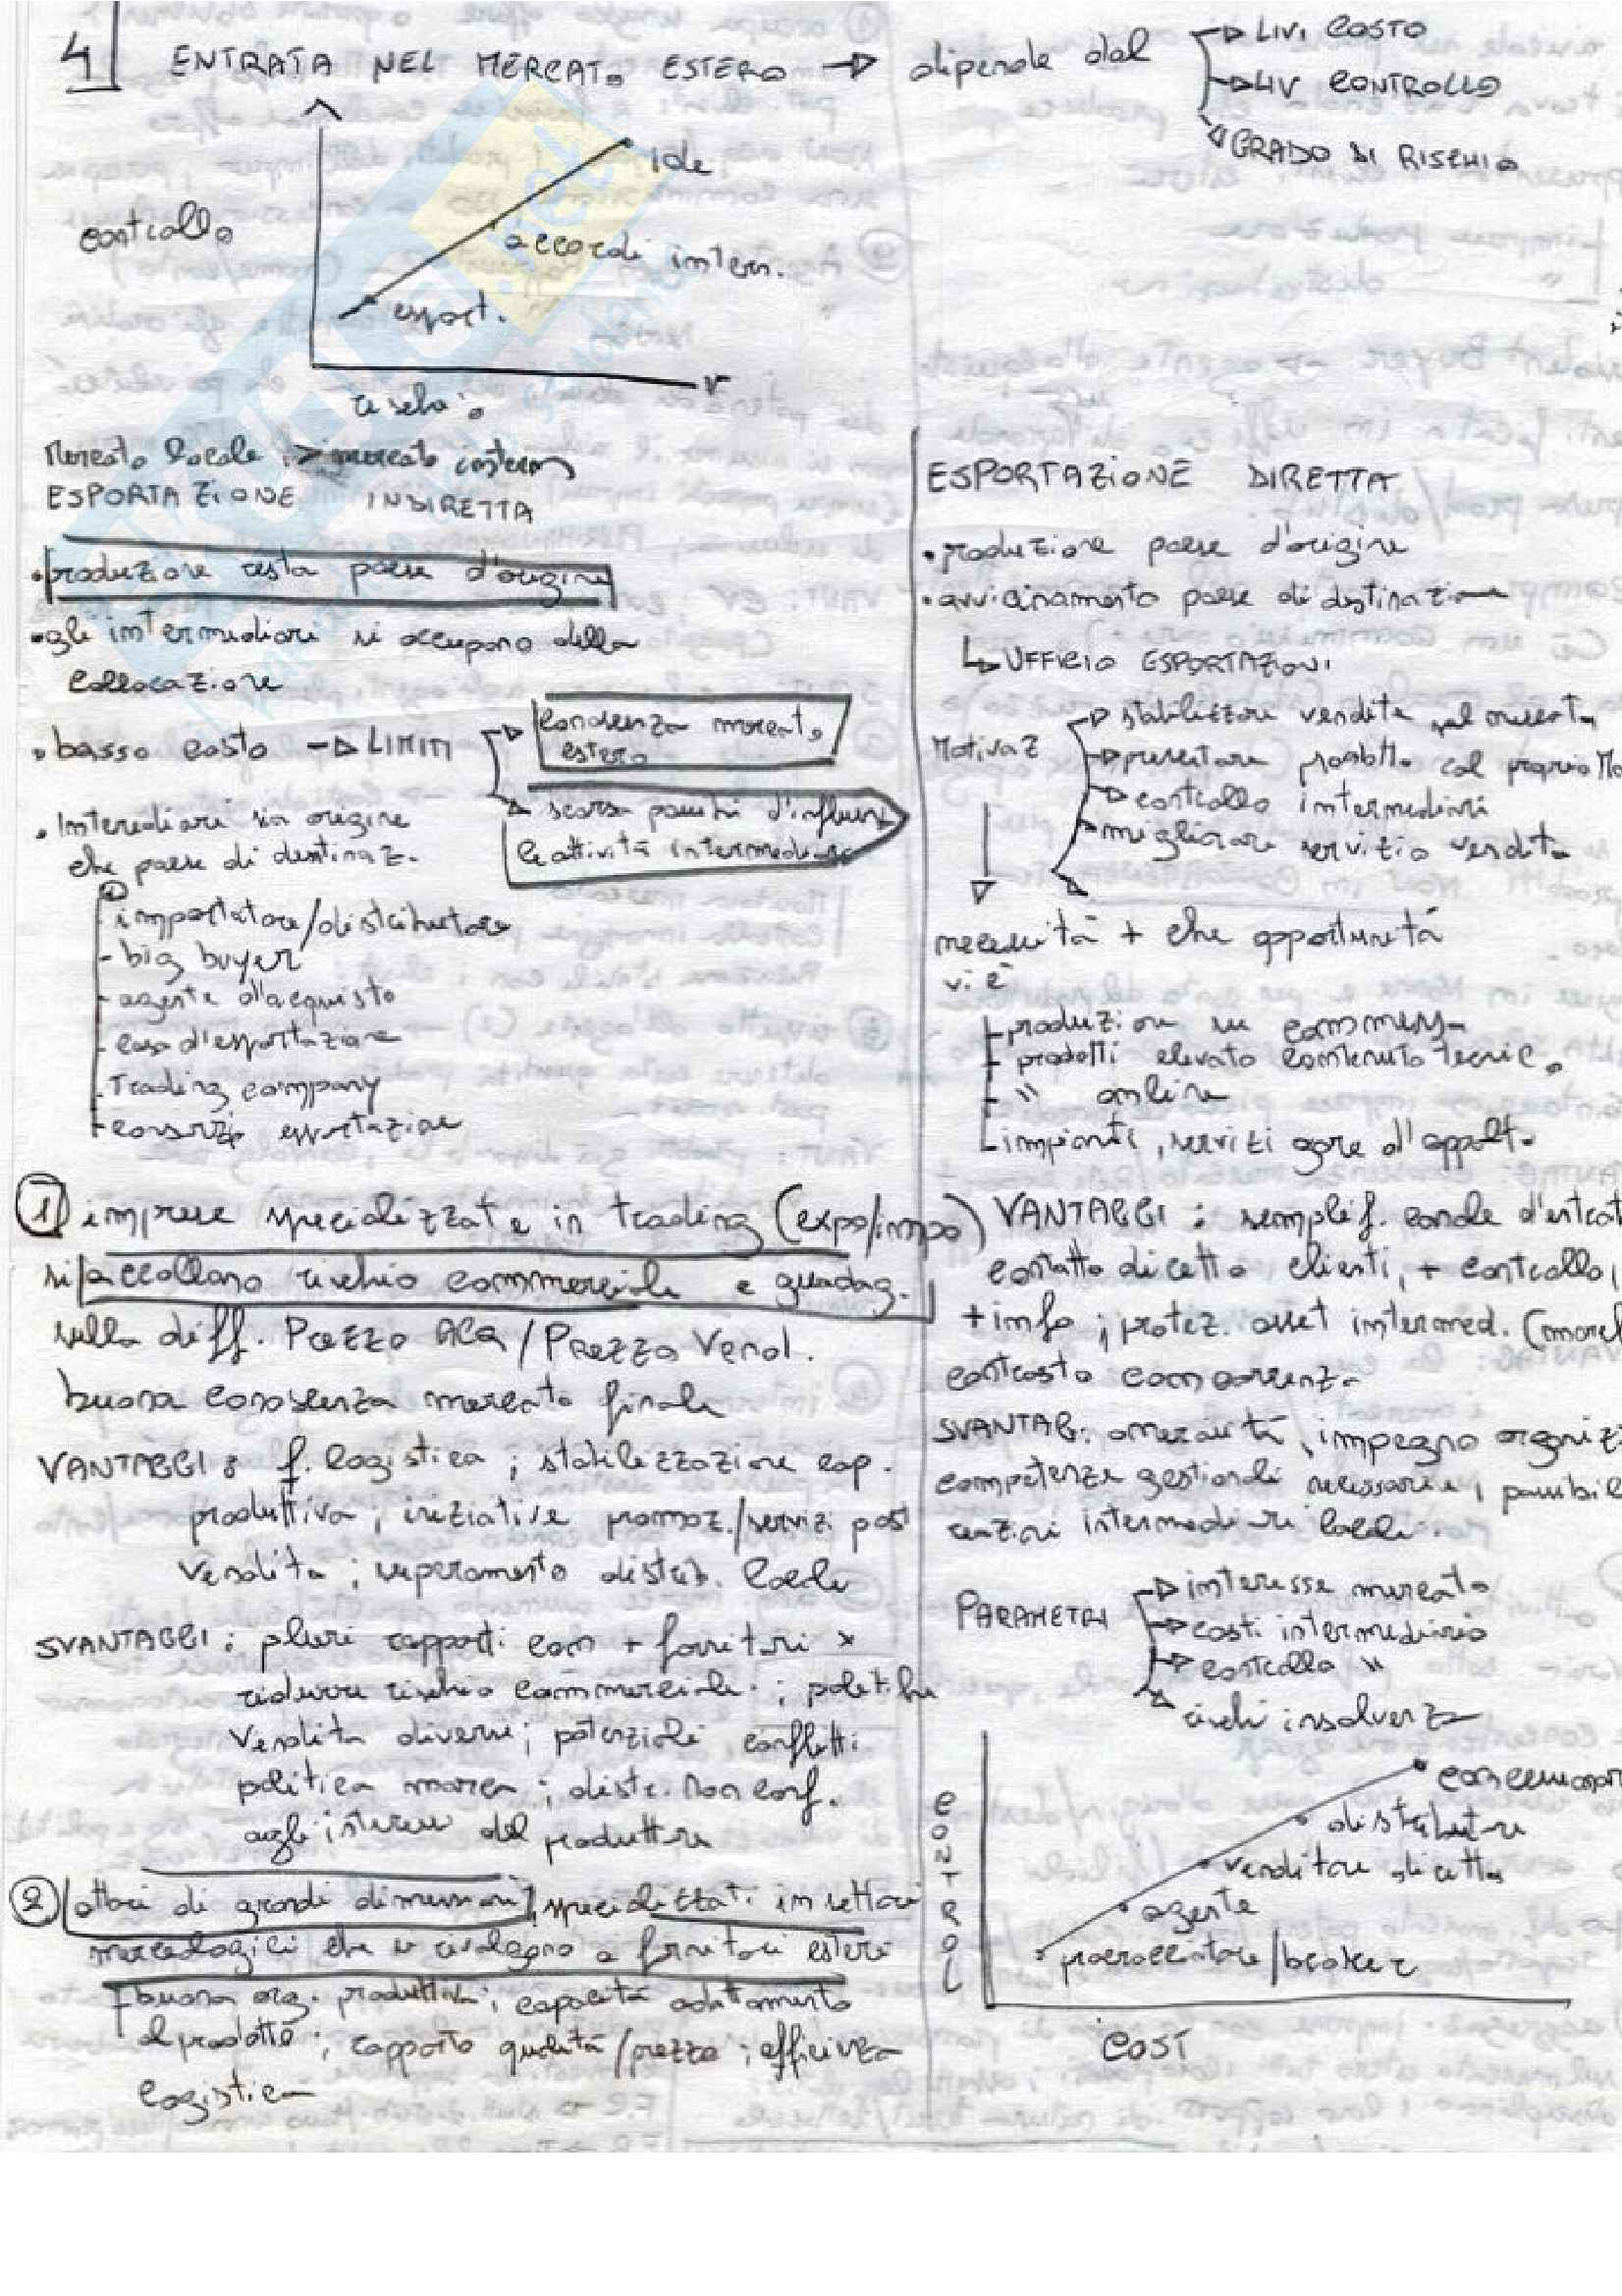 4 ENTRATA NEL MERCATO ESTERO → dipende dal
LIV. COSTO
LIV CONTROLLO
GRADO DI RISCHIO
controllo
Ide
accordi intern.
esport.
rischio
Mercato locale > mercato intern
ESPORTAZIONE INDIRETTA
• produzione resta paese d'origine
• gli intermediari si occupano della
collocazione
• basso costo → LIMITI
conoscenza mercato
estero
scarsa possibi d'influen
le attività intermediari
• Intermediari sia origine
che paese di destinaz.
importatore/distributore
- big buyer
- agente d'acquisto
- casa d'esportazione
- Trading company
- consorzi esportazione
① imprese specializzate in trading (expo/impo)
si accollano rischio commerciale e guadag.
sulla diff. Prezzo Acq/Prezzo Vend.
buona conoscenza mercato finale
VANTAGGI: f. logistica; stabilizzazione cap.
produttiva; iniziative promoz./servizi post
vendita; superamento distrib. locale
SVANTAGGI: pluri rapporti con + fornitori x
ridurre rischio commerciale; politiche
vendita diverse; potenziali conflitti
politica marca; distr. non conf.
agli interessi del produttore
② attori di grandi dimensioni, specializzati in settori
merceologici che si rivolgono a fornitori esteri
buona org. produttiva; capacità adattamento
al prodotto; rapporto qualità/prezzo; efficienza
logistica
ESPORTAZIONE DIRETTA
• produzione paese d'origine
• avvicinamento paese di destinazione
↳ UFFICIO ESPORTAZIONI
MOTIVAZ
stabilizzare vendite nel mercato
presentare prodotto col proprio Ma
controllo intermediari
migliorare servizio vendita
necessità + che opportunità
vi è
- produzione su commessa
- prodotti elevato contenuto tecnic.
- " online
- impianti, servizi gare d'appalto
VANTAGGI: semplif. canale d'entrat
contatto diretto clienti, + controllo,
+ info; protez. asset intermed. (march
contrasto concorrenza
SVANTAG: onerosità, impegno organiz
competenze gestionali necessarie, possibil
reazioni intermediari locali.
PARAMETRI
interesse mercato
costi intermediario
controllo "
rischi insolvenza
CONTROL
concessionar
distributore
venditore diretto
agente
procacciatore/broker
COSTI